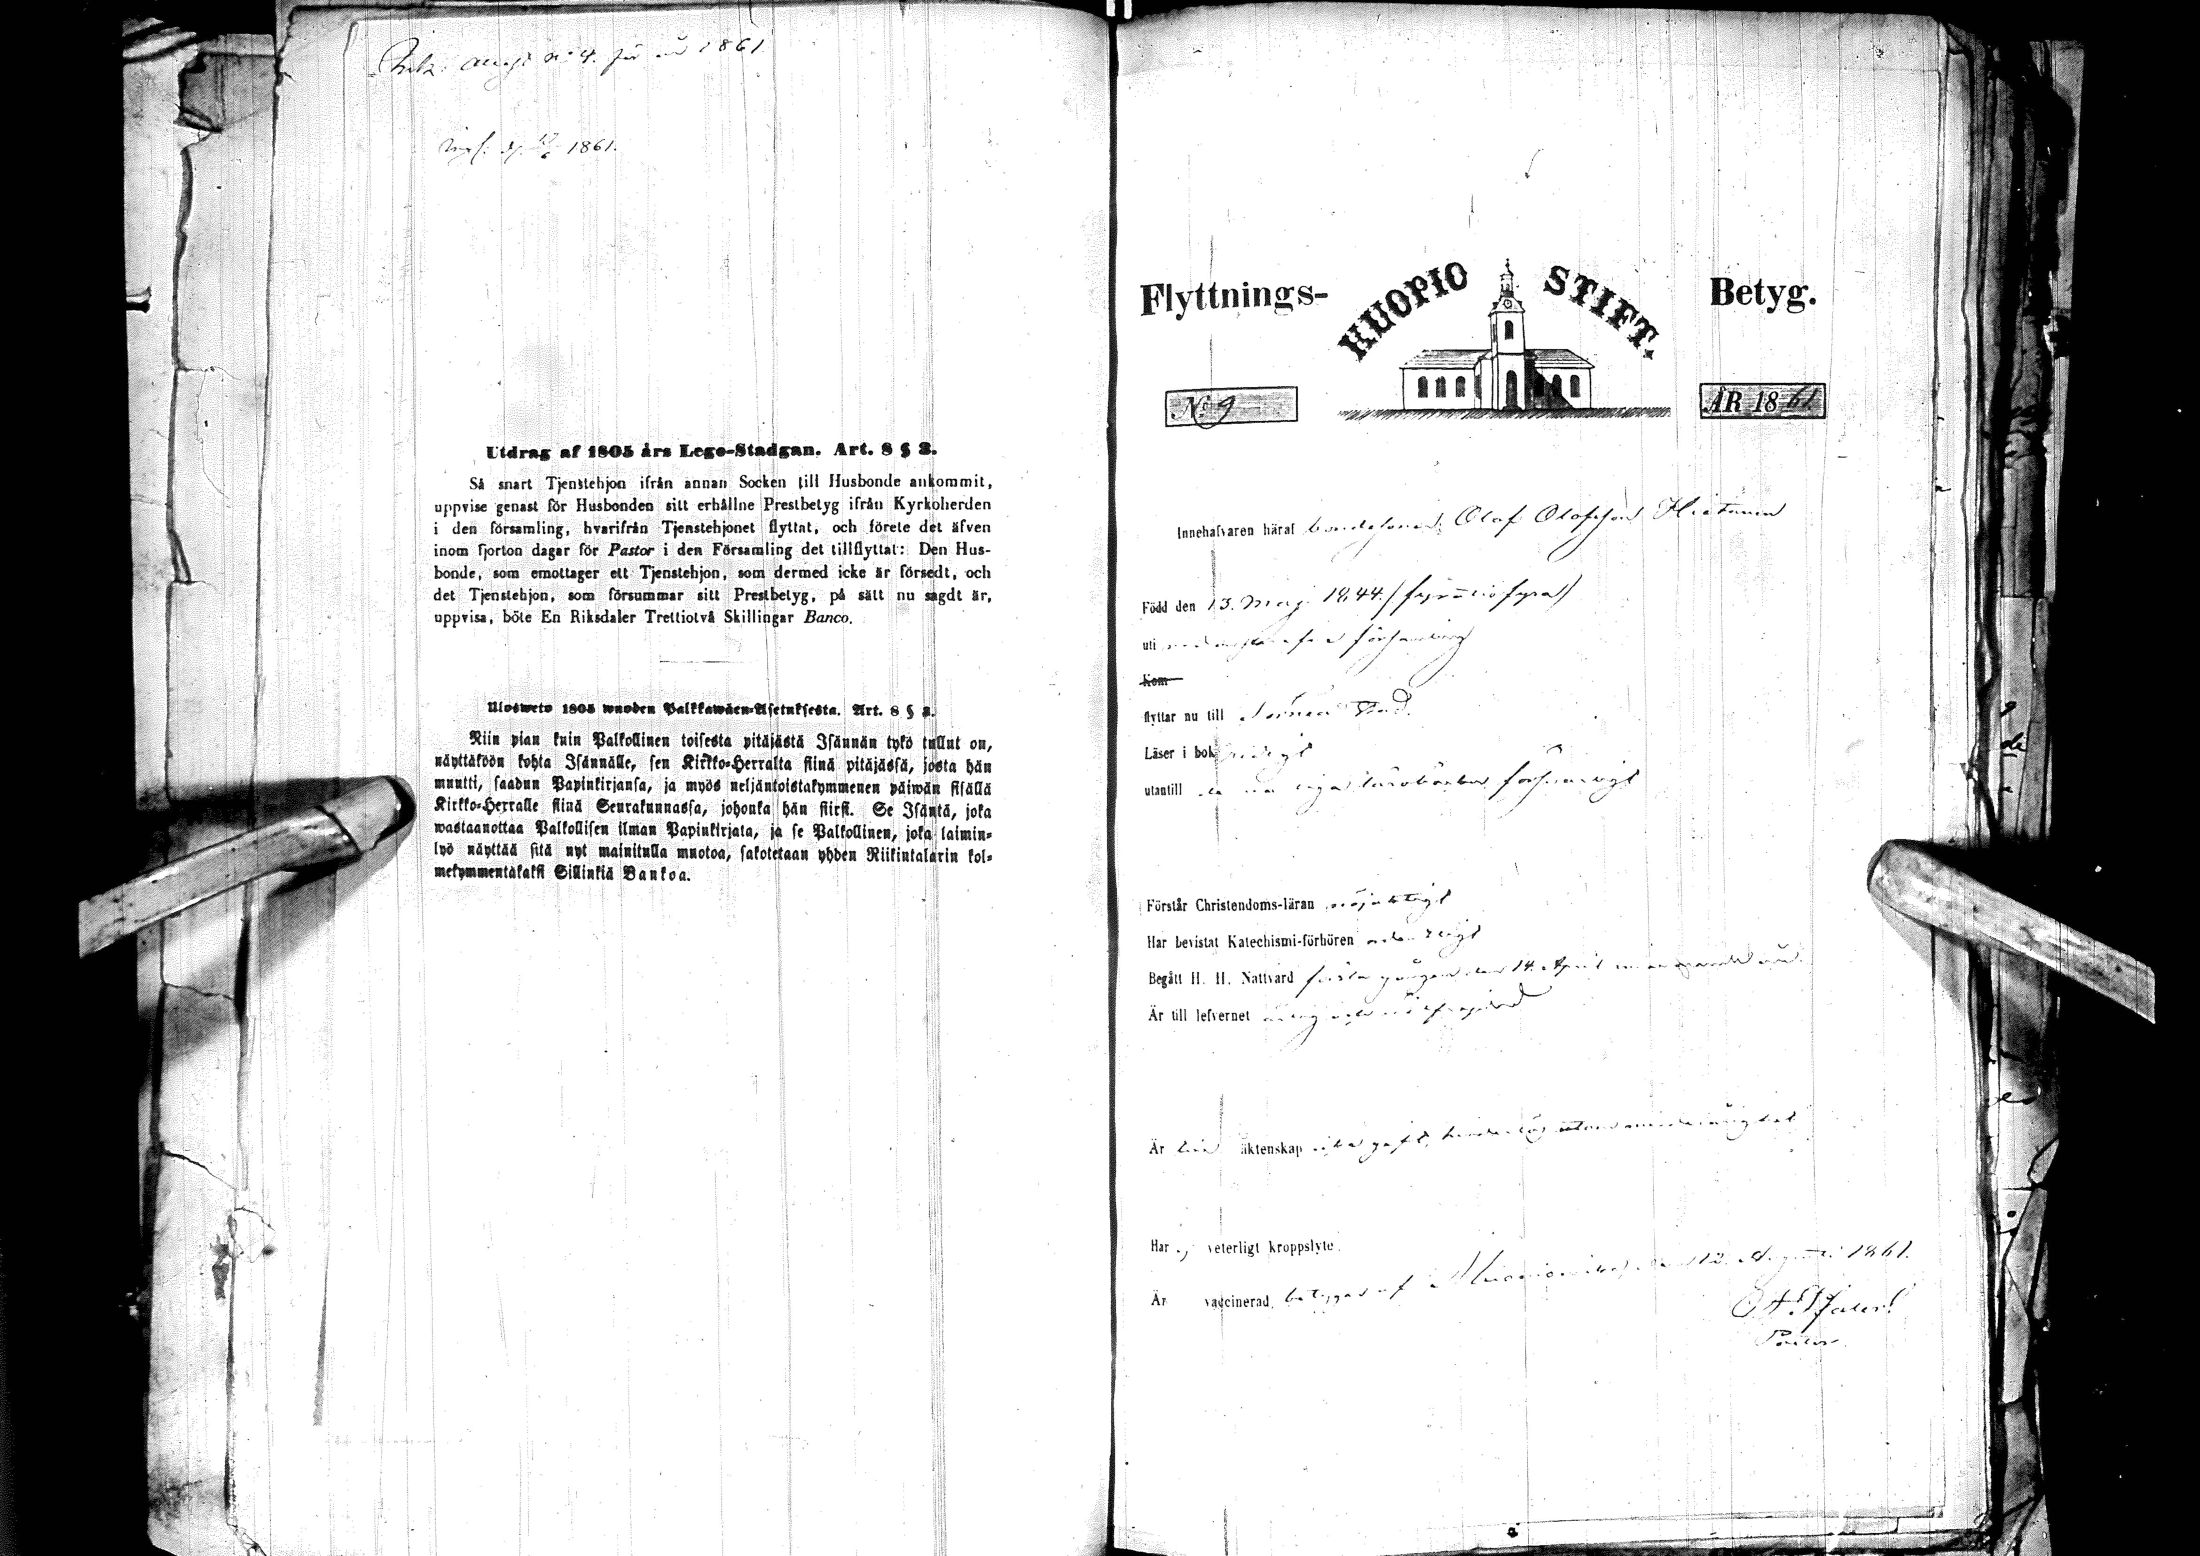 för år 1861
1861.
Utdrag af 1805 års Lego-Stadgan. Art. 8 § 3.
Så snart Tjenstehjon ifrån annan Socken till Husbonde ankommit,
uppvise genast för Husbonden sitt erhållne Prestbetyg ifrån Kyrkoherden
i den församling, hvarifrån Tjenstehjonet flyttat, och förete det äfven
inom fjorton dagar för Pastor i den Församling det tillflyttat: Den Hus-
bonde, som emottager ett Tjenstehjon, som dermed icke är försedt, och
det Tjenstehjon, som försummar sitt Prestbetyg, på sätt nu sagdt är,
uppvisa, böte En Riksdaler Trettiotvå Skillingar Banco.
Ulosweto 1805 wuoden Palkkawäen-Asetuksesta. Art. 8 § 3.
Niin pian kuin Palkollinen toisesta pitäjästä Isännän tykö tullut on,
näyttäköön kohta Isännälle, sen Kirkko-Herralta siinä pitäjässä, josta hän
muutti, saadun Papinkirjansa, ja myös neljäntoistakymmenen päiwän sisällä
Kirkko-Herralle siinä Seurakunnassa, johonka hän siirsi. Se Isäntä, joka
wastaanottaa Palkollisen ilman Papinkirjata, ja se Palkollinen, joka laimin-
lyö näyttää sitä nyt mainitulla muotoa, sakotetaan yhden Riikintalarin kol-
mekymmentäkaksi Sillinkiä Bankoa.
Flyttnings- KUOPIO STIFT. Betyg.
No 9 ÅR 1861.
Innehafvaren häraf bondesonen Olof Olofsson Hietanen
Född den 13. Maj 1844. (fyratiofyra)
uti församling
Kom
flyttar nu till Torneå Stad.
Läser i bok
utantill försvarligt
Förstår Christendoms-läran nöjaktigt
Har bevistat Katechismi-förhören ordentligt
Begått H. H. Nattvard första gången den 14. April
Är till lefvernet
Är till äktenskap
Har ej veterligt kroppslyte.
Är vaccinerad, betygar af Muonioniska den 12. Augusti 1861.
Pastor.